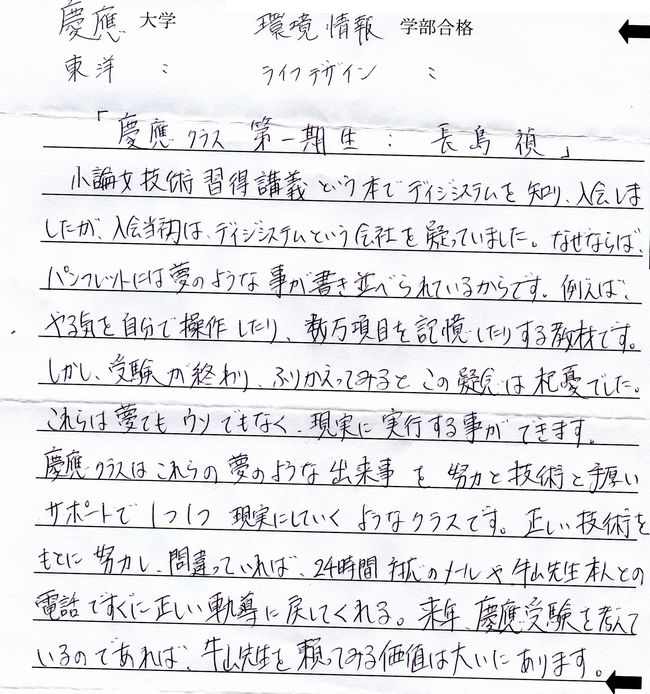 慶應 大学 環境情報 学部合格
東洋 : ライフデザイン :
「慶應クラス 第一期生 : 長島 禎」
小論文技術習得講義という本でディジシステムを知り、入会しま
したが、入会当初は、ディジシステムという会社を疑っていました。なぜならば、
パンフレットには夢のような事が書き並べられているからです。例えば、
やる気を自分で操作したり、数万項目を記憶したりする教材です。
しかし、受験が終わり、ふりかえってみるとこの疑念は杞憂でした。
これらは夢でもウソでもなく、現実に実行する事ができます。
慶應クラスはこれらの夢のような出来事を努力と技術と手厚い
サポートで1つ1つ現実にしていくようなクラスです。正しい技術を
もとに努力し、間違っていれば、24時間対応のメールや牛山先生本人との
電話ですぐに正しい軌導に戻してくれる。来年、慶應受験を考えて
いるのであれば、牛山先生を頼ってみる価値は大いにあります。